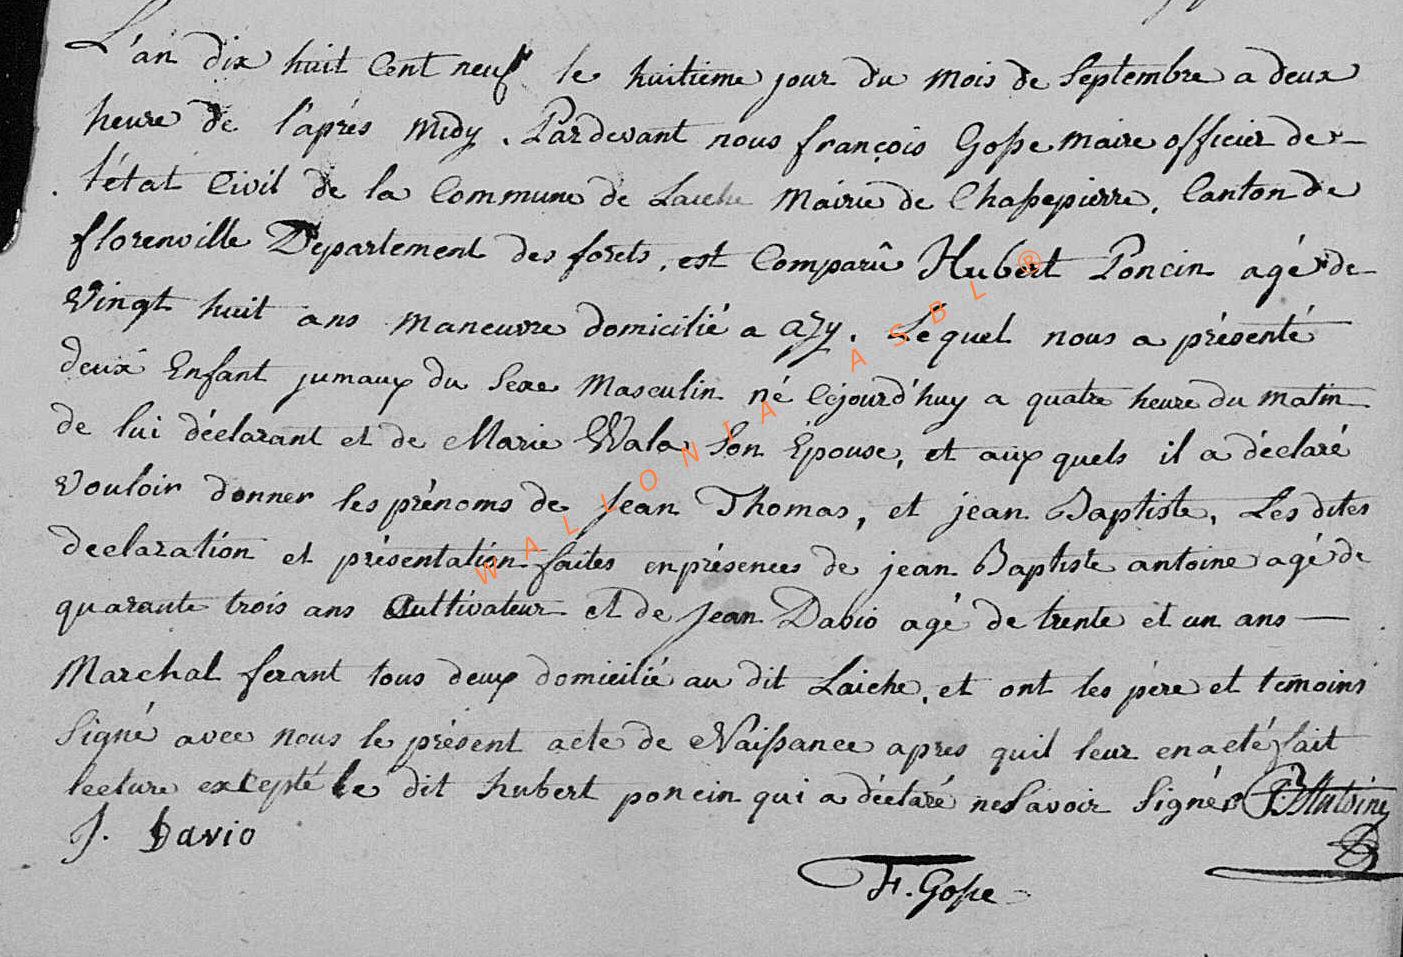 L'an dix huit Cent neuf le huitieme jour du mois de Septembre a deux
heure de l'aprés midy. Pardevant nous françois Goſse maire officier de
l'état Civil de la Commune de Laiche Mairie de Chaſsepierre, Canton de
florenville Departement des forets, est Comparû Hubert Poncin agé de
Vingt huit ans maneuvre domicilié a azy. Lequel nous a présenté
deux Enfant jumaux du Sexe Masculin né Cejourd'huy a quatre heure du matin
de lui déclarant et de Marie Wala Son Épouse, et aux quels il a déclaré
Vouloir donner les prénoms de Jean Thomas, et jean Baptiste, Les dites
declaration et présentation faites en présences de jean Baptiste antoine agé de
quarante trois ans Cultivateur et de Jean Davio agé de trente et un ans —
Marchal ferant tous deux domicilié au dit Laiche, et ont les pere et temoins
Signé avec nous le présent acte de Naiſsance apres quil leur en a eté fait
lecture excepté le dit hubert poncin qui a déclaré ne Savoir Signér J.B Antoine
J. Davio
F. Goſse
WALLONIA ASBL ®